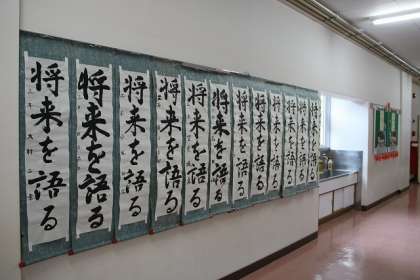 将来を語る
将来を語る
将来を語る
将来を語る
将来を語る
将来を語る
将来を語る
将来を語る
将来を語る
将来を語る
将来を語る
将来を語る